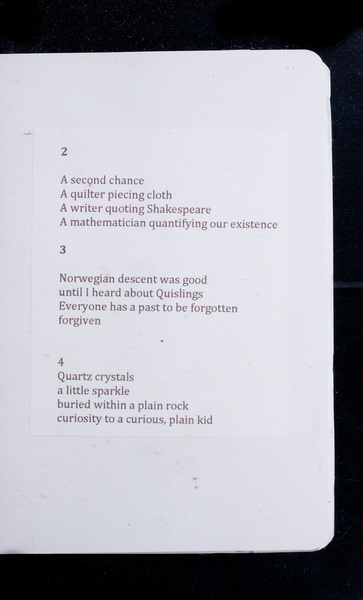 2
A second chance
A quilter piecing cloth
A writer quoting Shakespeare
A mathematician quantifying our existence
3
Norwegian descent was good
until I heard about Quislings
Everyone has a past to be forgotten
forgiven
4
Quartz crystals
a little sparkle
buried within a plain rock
curiosity to a curious, plain kid